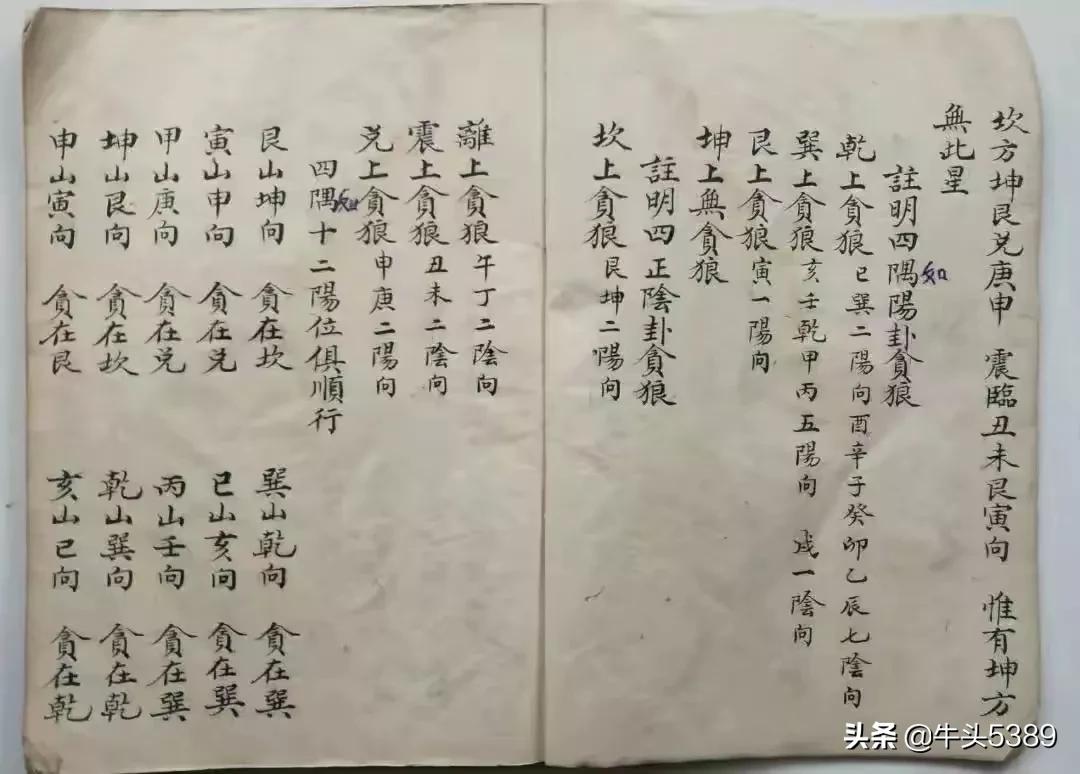 坎方坤艮兑庚申　震臨丑未艮寅向　惟有坤方
無此星
註明四隅陽卦貪狼
如
乾上貪狼 巳巽二陽向酉辛子癸卯乙辰七陰向
巽上貪狼 亥壬乾甲丙五陽向　戌一陰向
艮上貪狼 寅一陽向
坤上無貪狼
註明四正陰卦貪狼
坎上貪狼 艮坤二陽向
離上貪狼 午丁二陰向
震上貪狼 丑未二陰向
兑上貪狼 申庚二陽向
四隅十二陽位俱順行
如
艮山坤向　貪在坎　巽山乾向　貪在巽
寅山申向　貪在兑　巳山亥向　貪在巽
甲山庚向　貪在兑　丙山壬向　貪在巽
坤山艮向　貪在坎　乾山巽向　貪在乾
申山寅向　貪在艮　亥山巳向　貪在乾
头条 @牛头5389